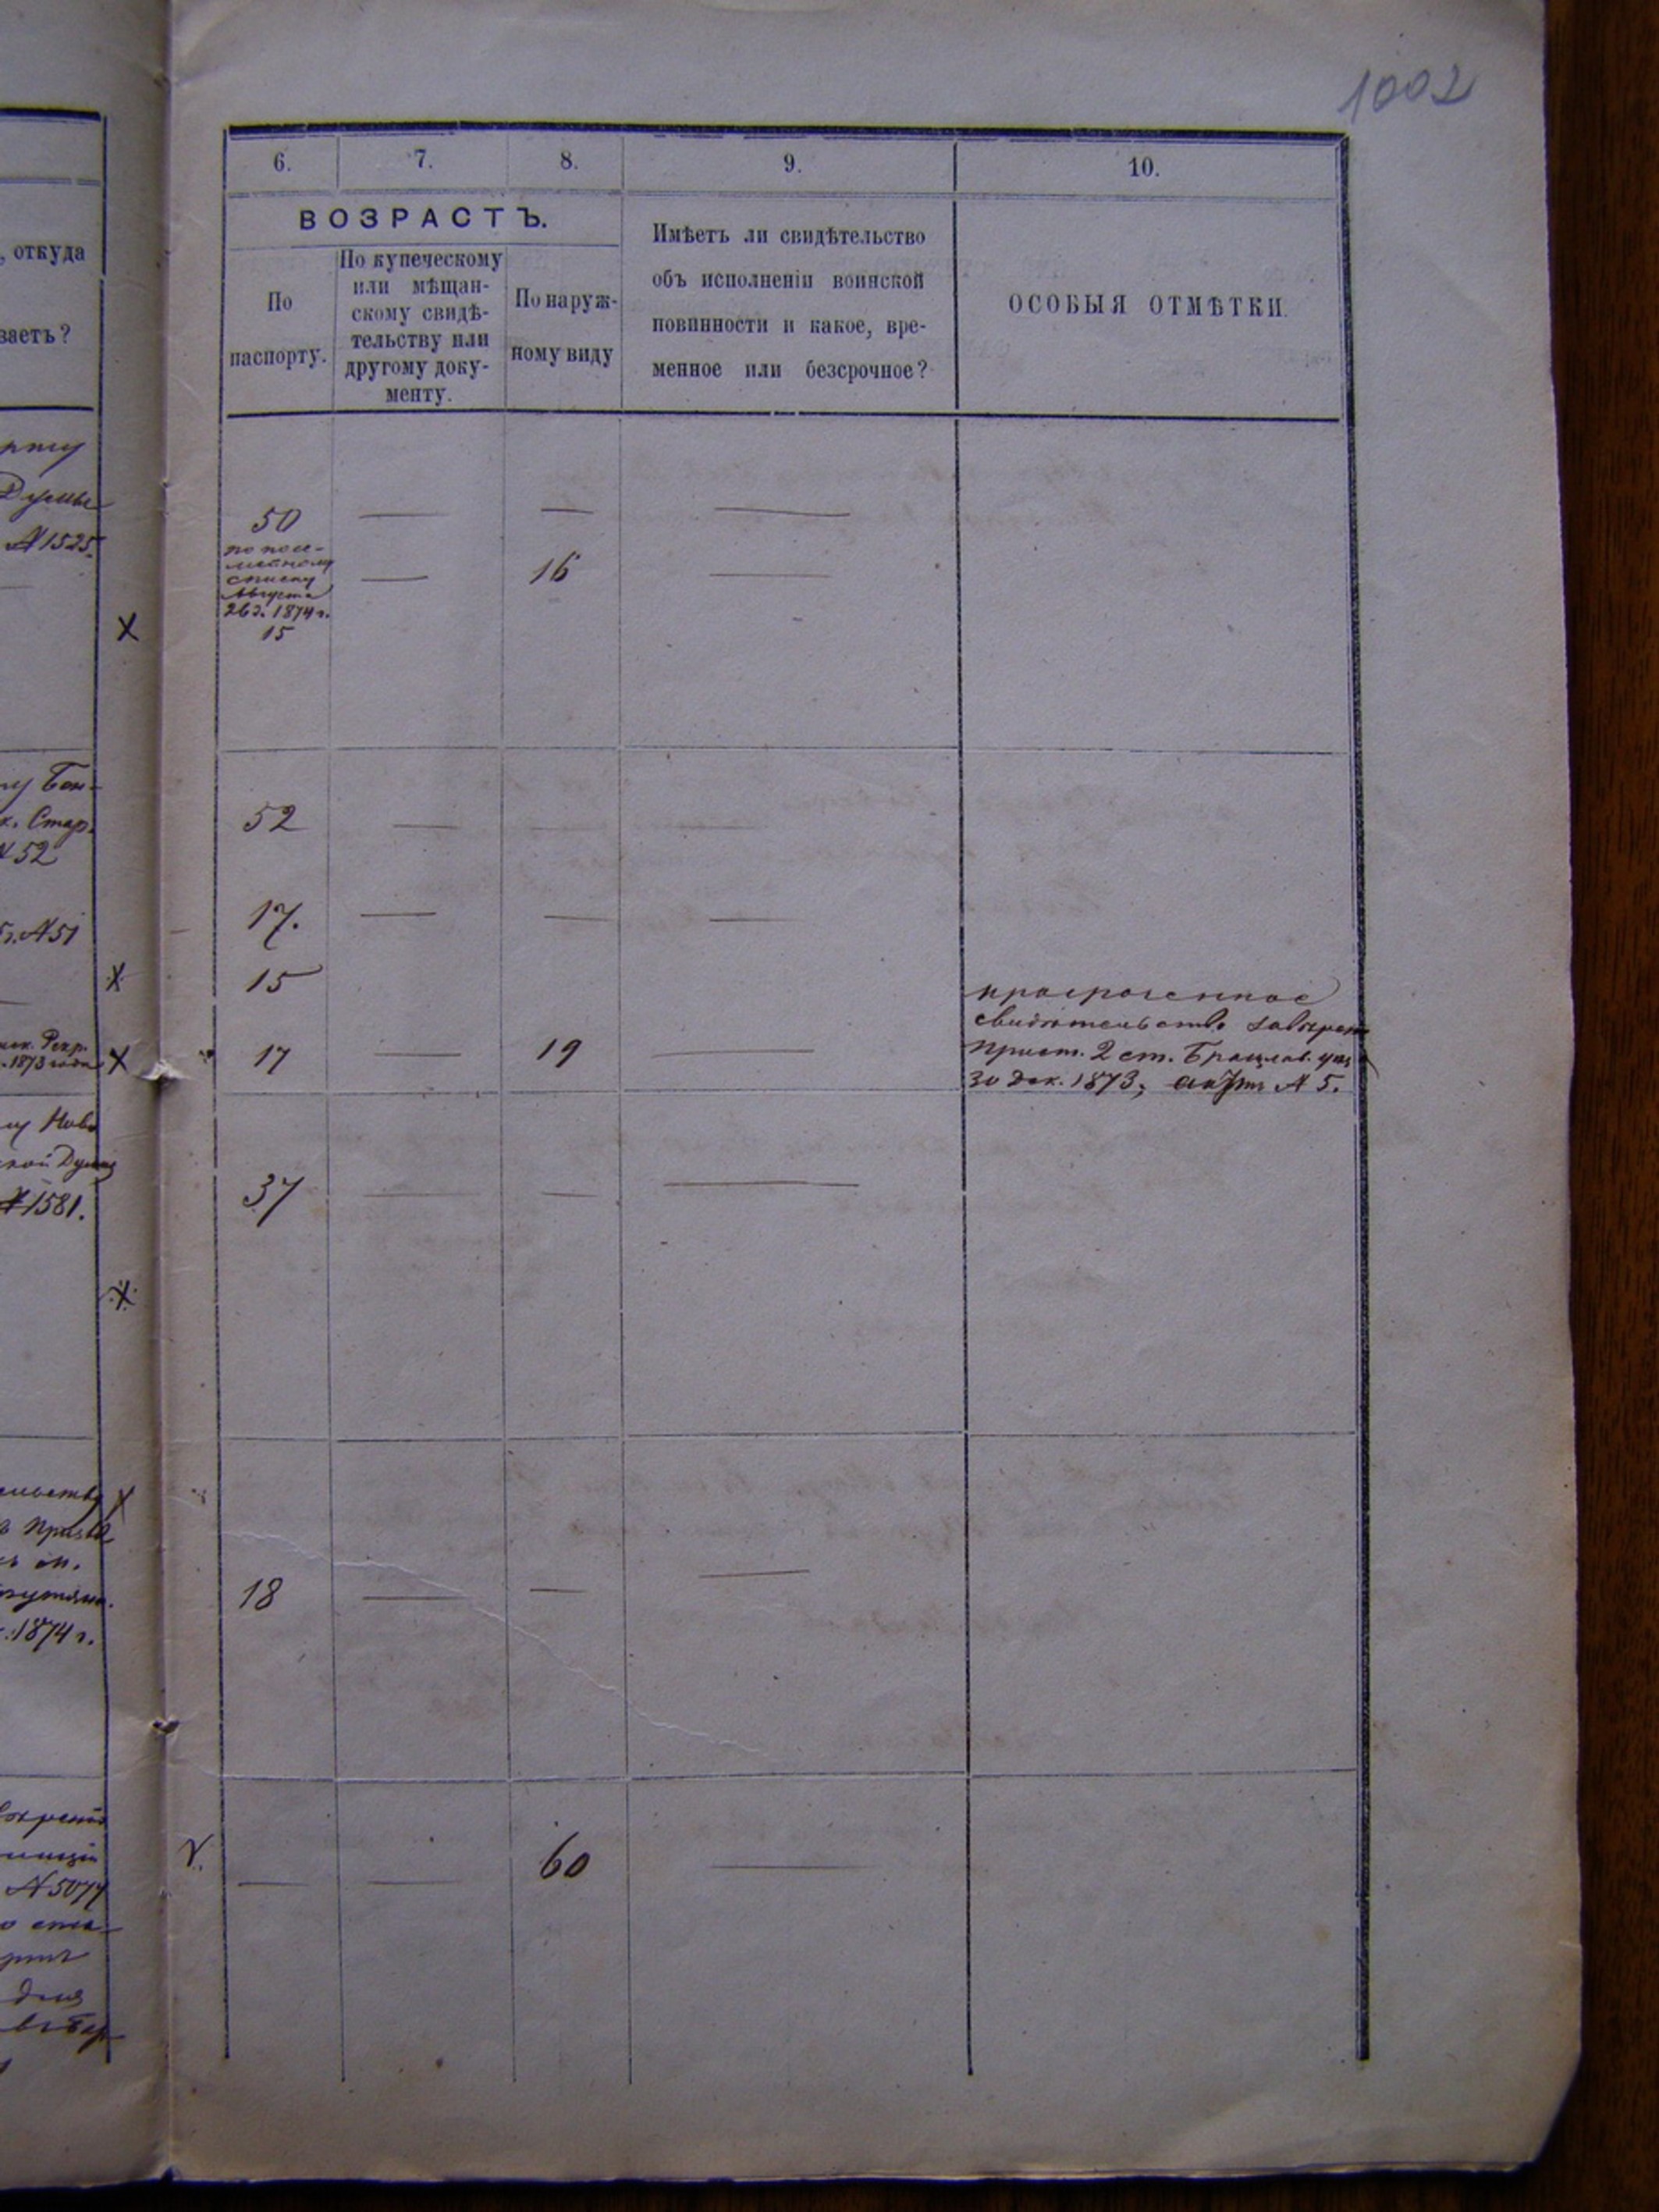 1002
, откуда
ваетъ?
Думы
№ 1525.
Бен-
к. Стар.
№ 52
№ 51
1873 года
Ново
ской Думы
№ 1581.
1874 г.
№ 5077
дня
6. 7. 8. 9. 10.
ВОЗРАСТЪ.
По
паспорту.
По купеческому
или мѣщан-
скому свидѣ-
тельству или
другому доку-
менту.
По наруж-
ному виду
Имѣетъ ли свидѣтельство
объ исполненіи воинской
повинности и какое, вре-
менное или безсрочное?
ОСОБЫЯ ОТМѢТКИ.
50 — — —
по посе-
мейному
списку
Августа
26 д. 1874 г.
15
— 16 —
52 — — —
17. — — —
15
17 — 19 —
просроченное
свидѣтельство
Прист. 2 ст. Брацлав. уѣз
30 дек. 1873, № 5.
37 — — —
18 — — —
— — 60 —